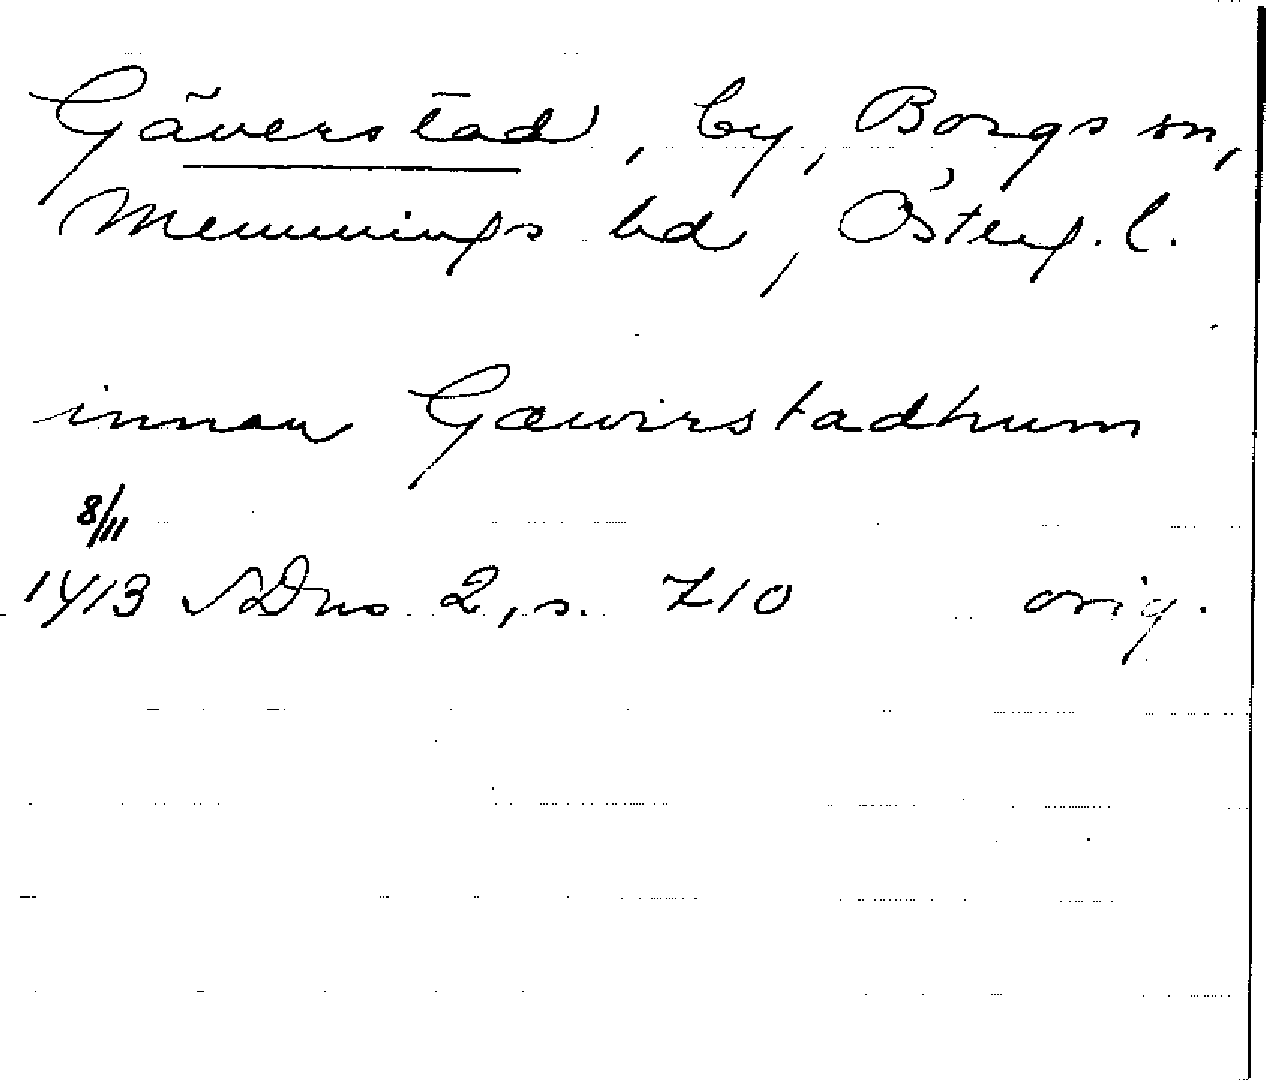 Gäverstad, by, Borgs sn,
Memmings hd, Österg. l.
innan Gæwirstadhum
8/11
1413 SDns 2, s. 710 orig.